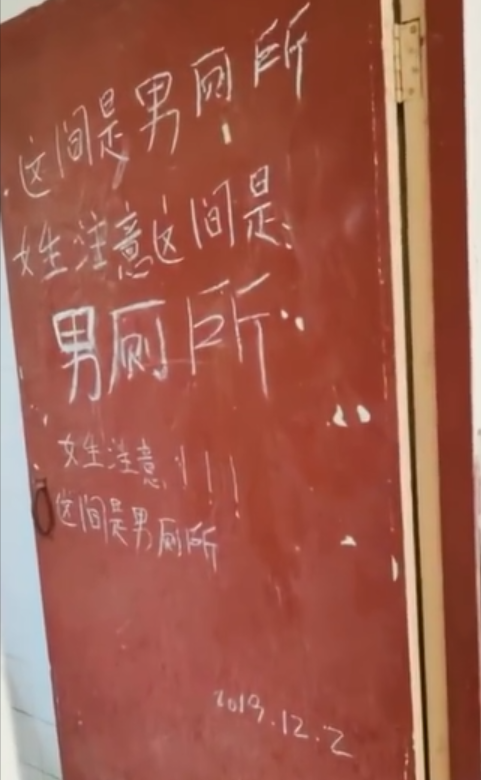 这间是男厕所
女生注意这间是:
男厕所
女生注意!!!
这间是男厕所
2019.12.2